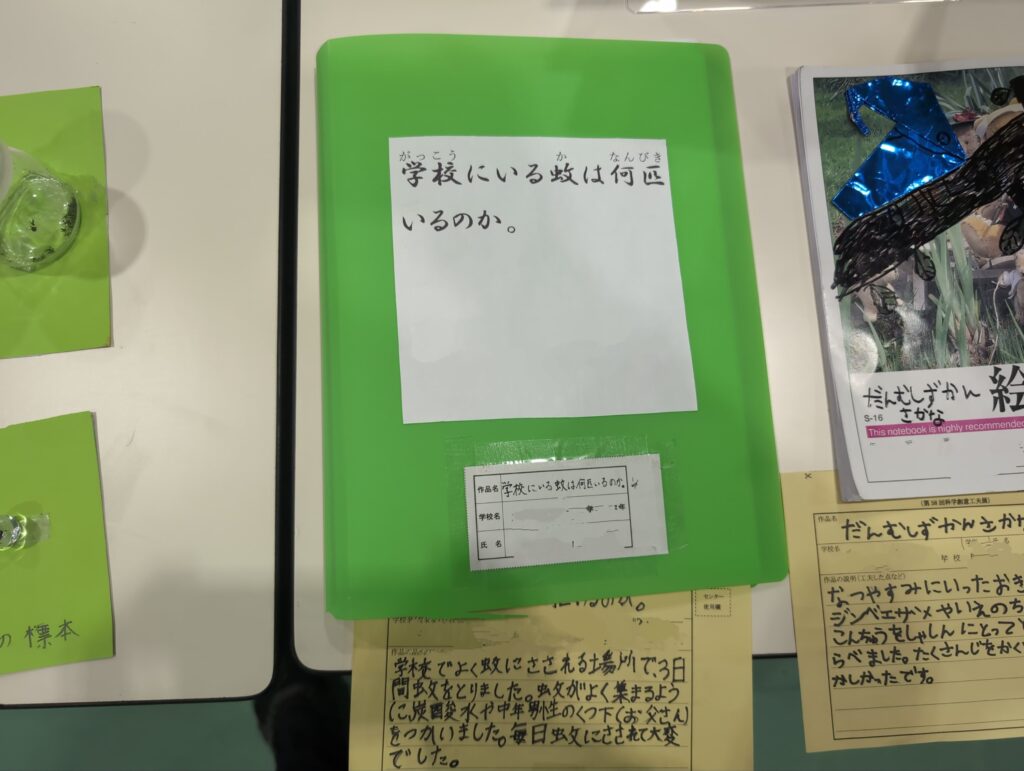 がっこう か なんびき
学校にいる蚊は何匹
いるのか。
作品名 学校にいる蚊は何匹いるのか。
学校名 学 年
氏名
いるのか。
センター
使用欄
学校でよく蚊にさされる場所で、3日
間蚊をとりました。蚊がよく集まるよう
に、炭酸水や中年男性のくつ下(お父さん)
をつかいました。毎日蚊にさされて大変
でした。
の標本
だんむしずかん
さかな
絵
S-16
This notebook is highly recommended
(第58回科学創意工夫展)
作品名 だんむしずかんさかな
学校名 学校 学年 氏名
作品の説明(工夫した点など)
なつやすみにいったおき
ジンベエザメやいえのち
こんちゅうをしゃしんにとって
らべました。たくさんじをかく
かしかったです。